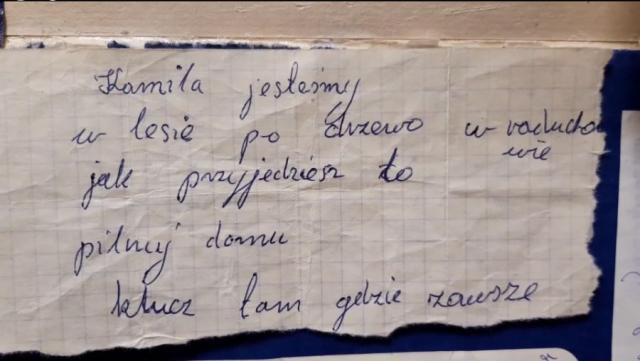 Kamila jesteśmy
w lesie po drzewo w raducho
wie
jak przyjedziesz to
pilnuj domu
klucz tam gdzie zawsze